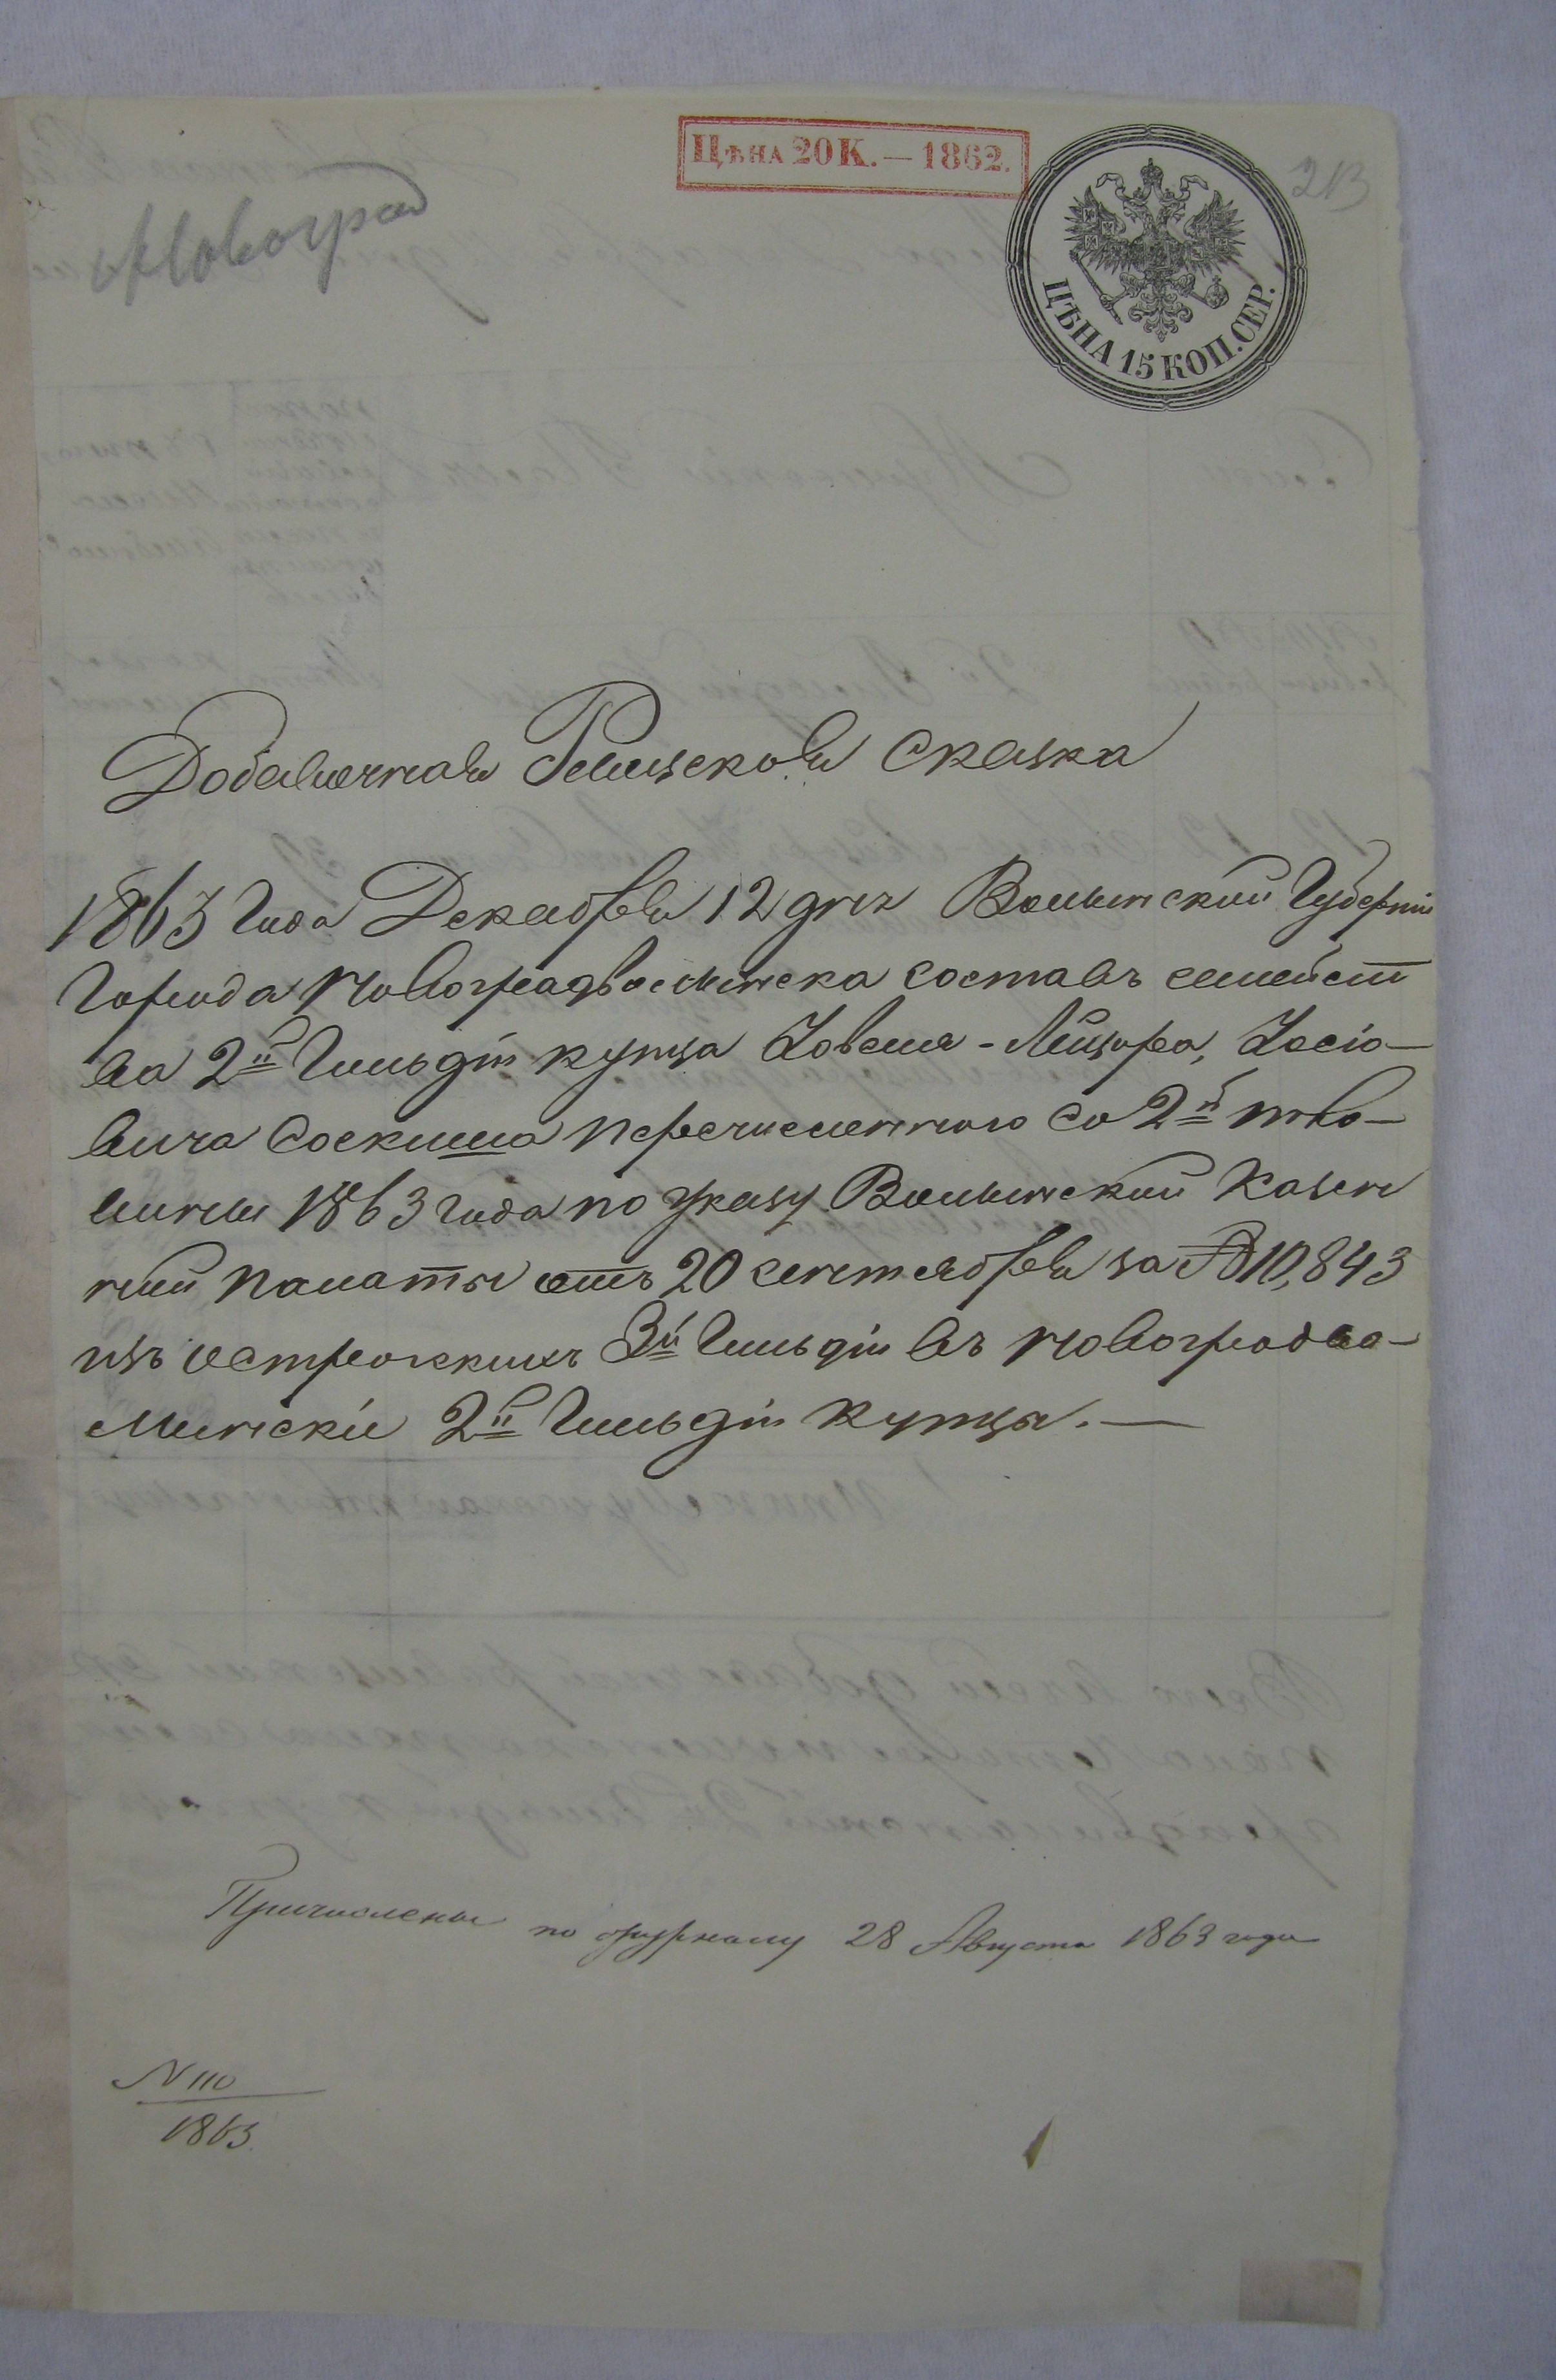 ЦѢНА 20 К. — 1862.
213
Новоград
ЦѢНА 15 КОП. СЕР.
Добавочная Ревизская Сказка
1863 Года Декабря 12 дня Волынской Губерніи
Города Новоградволынска составъ семейст
ва 2й Гильдіи купца Іовеля-Лейзера, Іосіо-
вича Соскина перечисленного со 2й поло-
вины 1863 года по указу Волынской Казен
ной Палаты отъ 20 сентября за № 10,843
изъ острожскихъ 3й Гильдіи въ Новоградво-
лынскіи 2й Гильдіи купцы. —
Причислены по журналу 28 Августа 1863 года
N 110
1863.